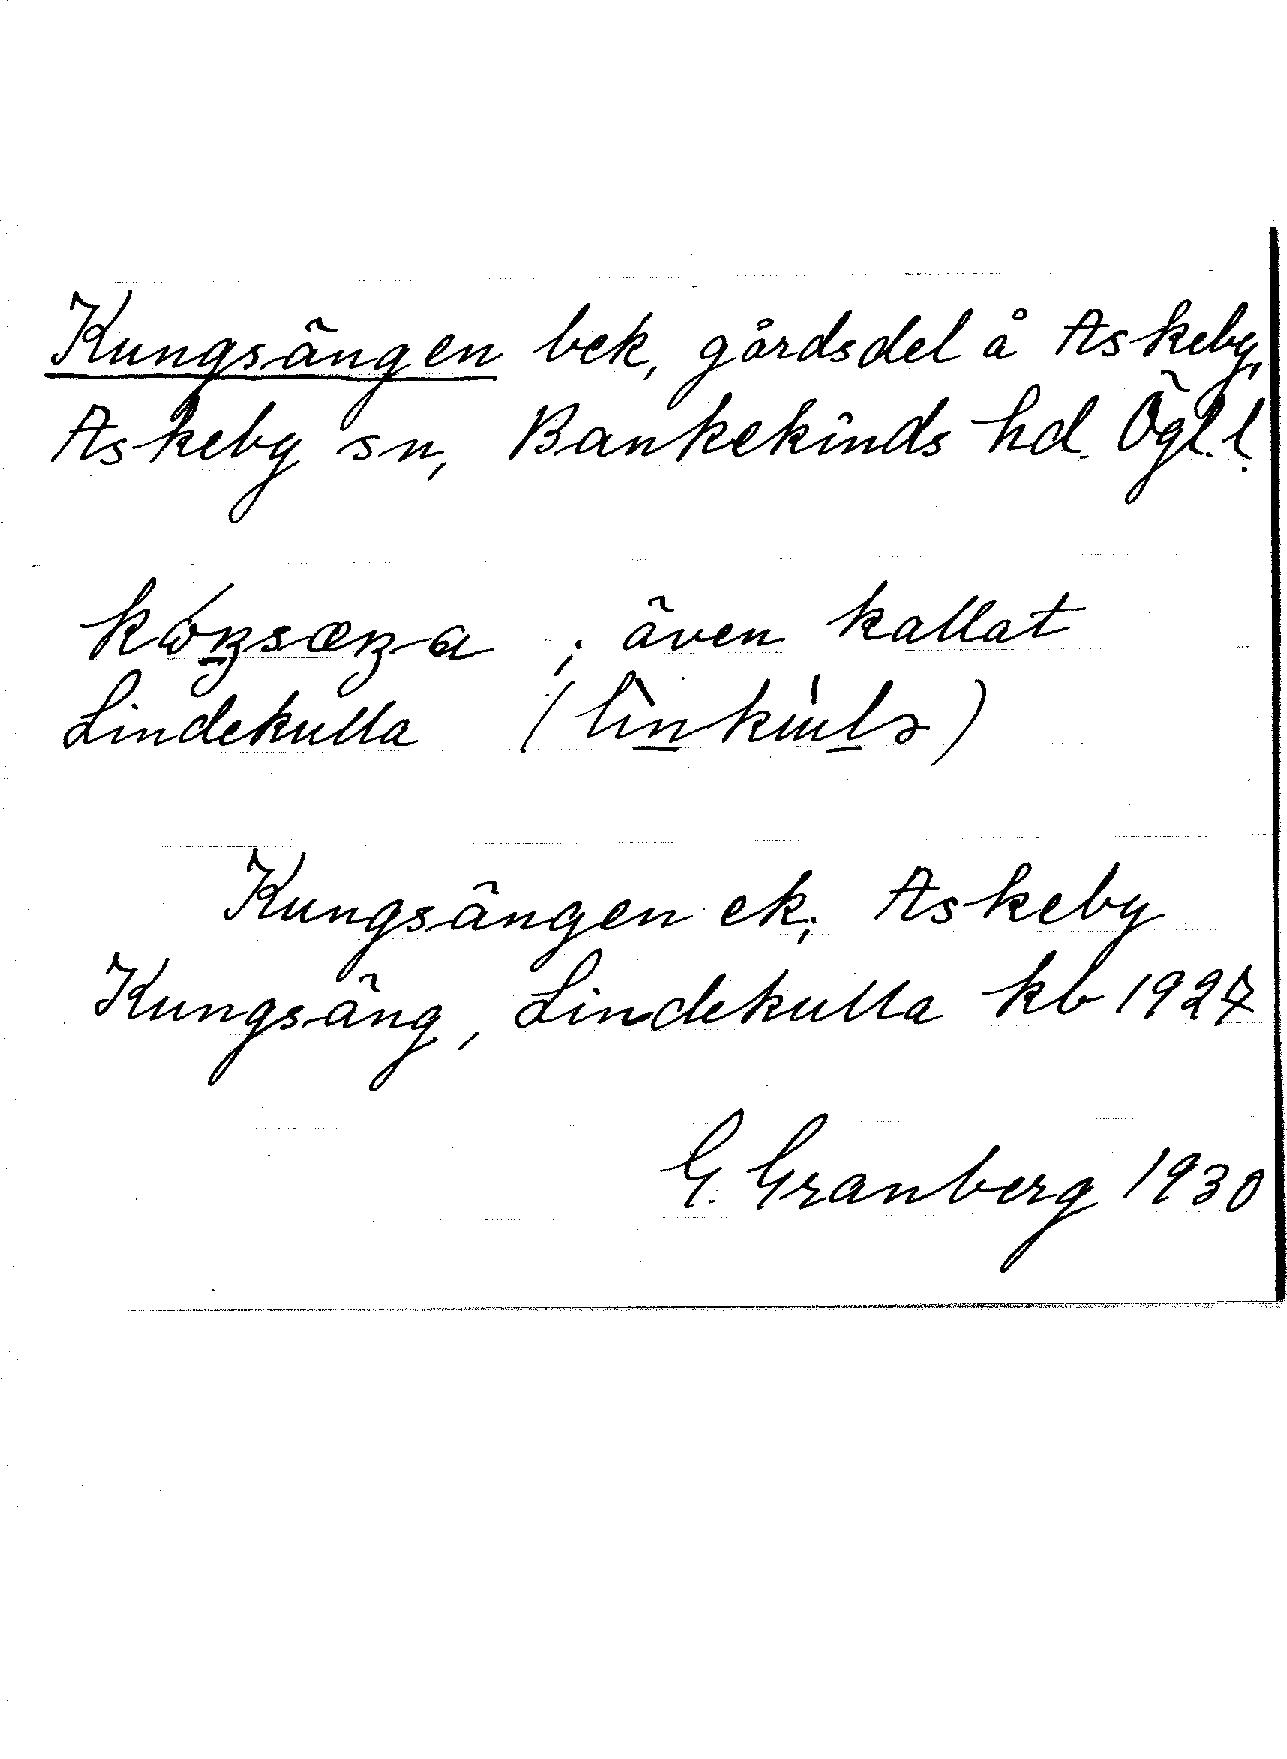 Kungsängen bek, gårdsdel å Askeby,
Askeby sn, Bankekinds hd. Ögl. l.
kóŋsæŋa ; även kallat
Lindekulla (
Kungsängen ek; Askeby
Kungsäng, Lindekulla kb 1927
G. Granberg 1930